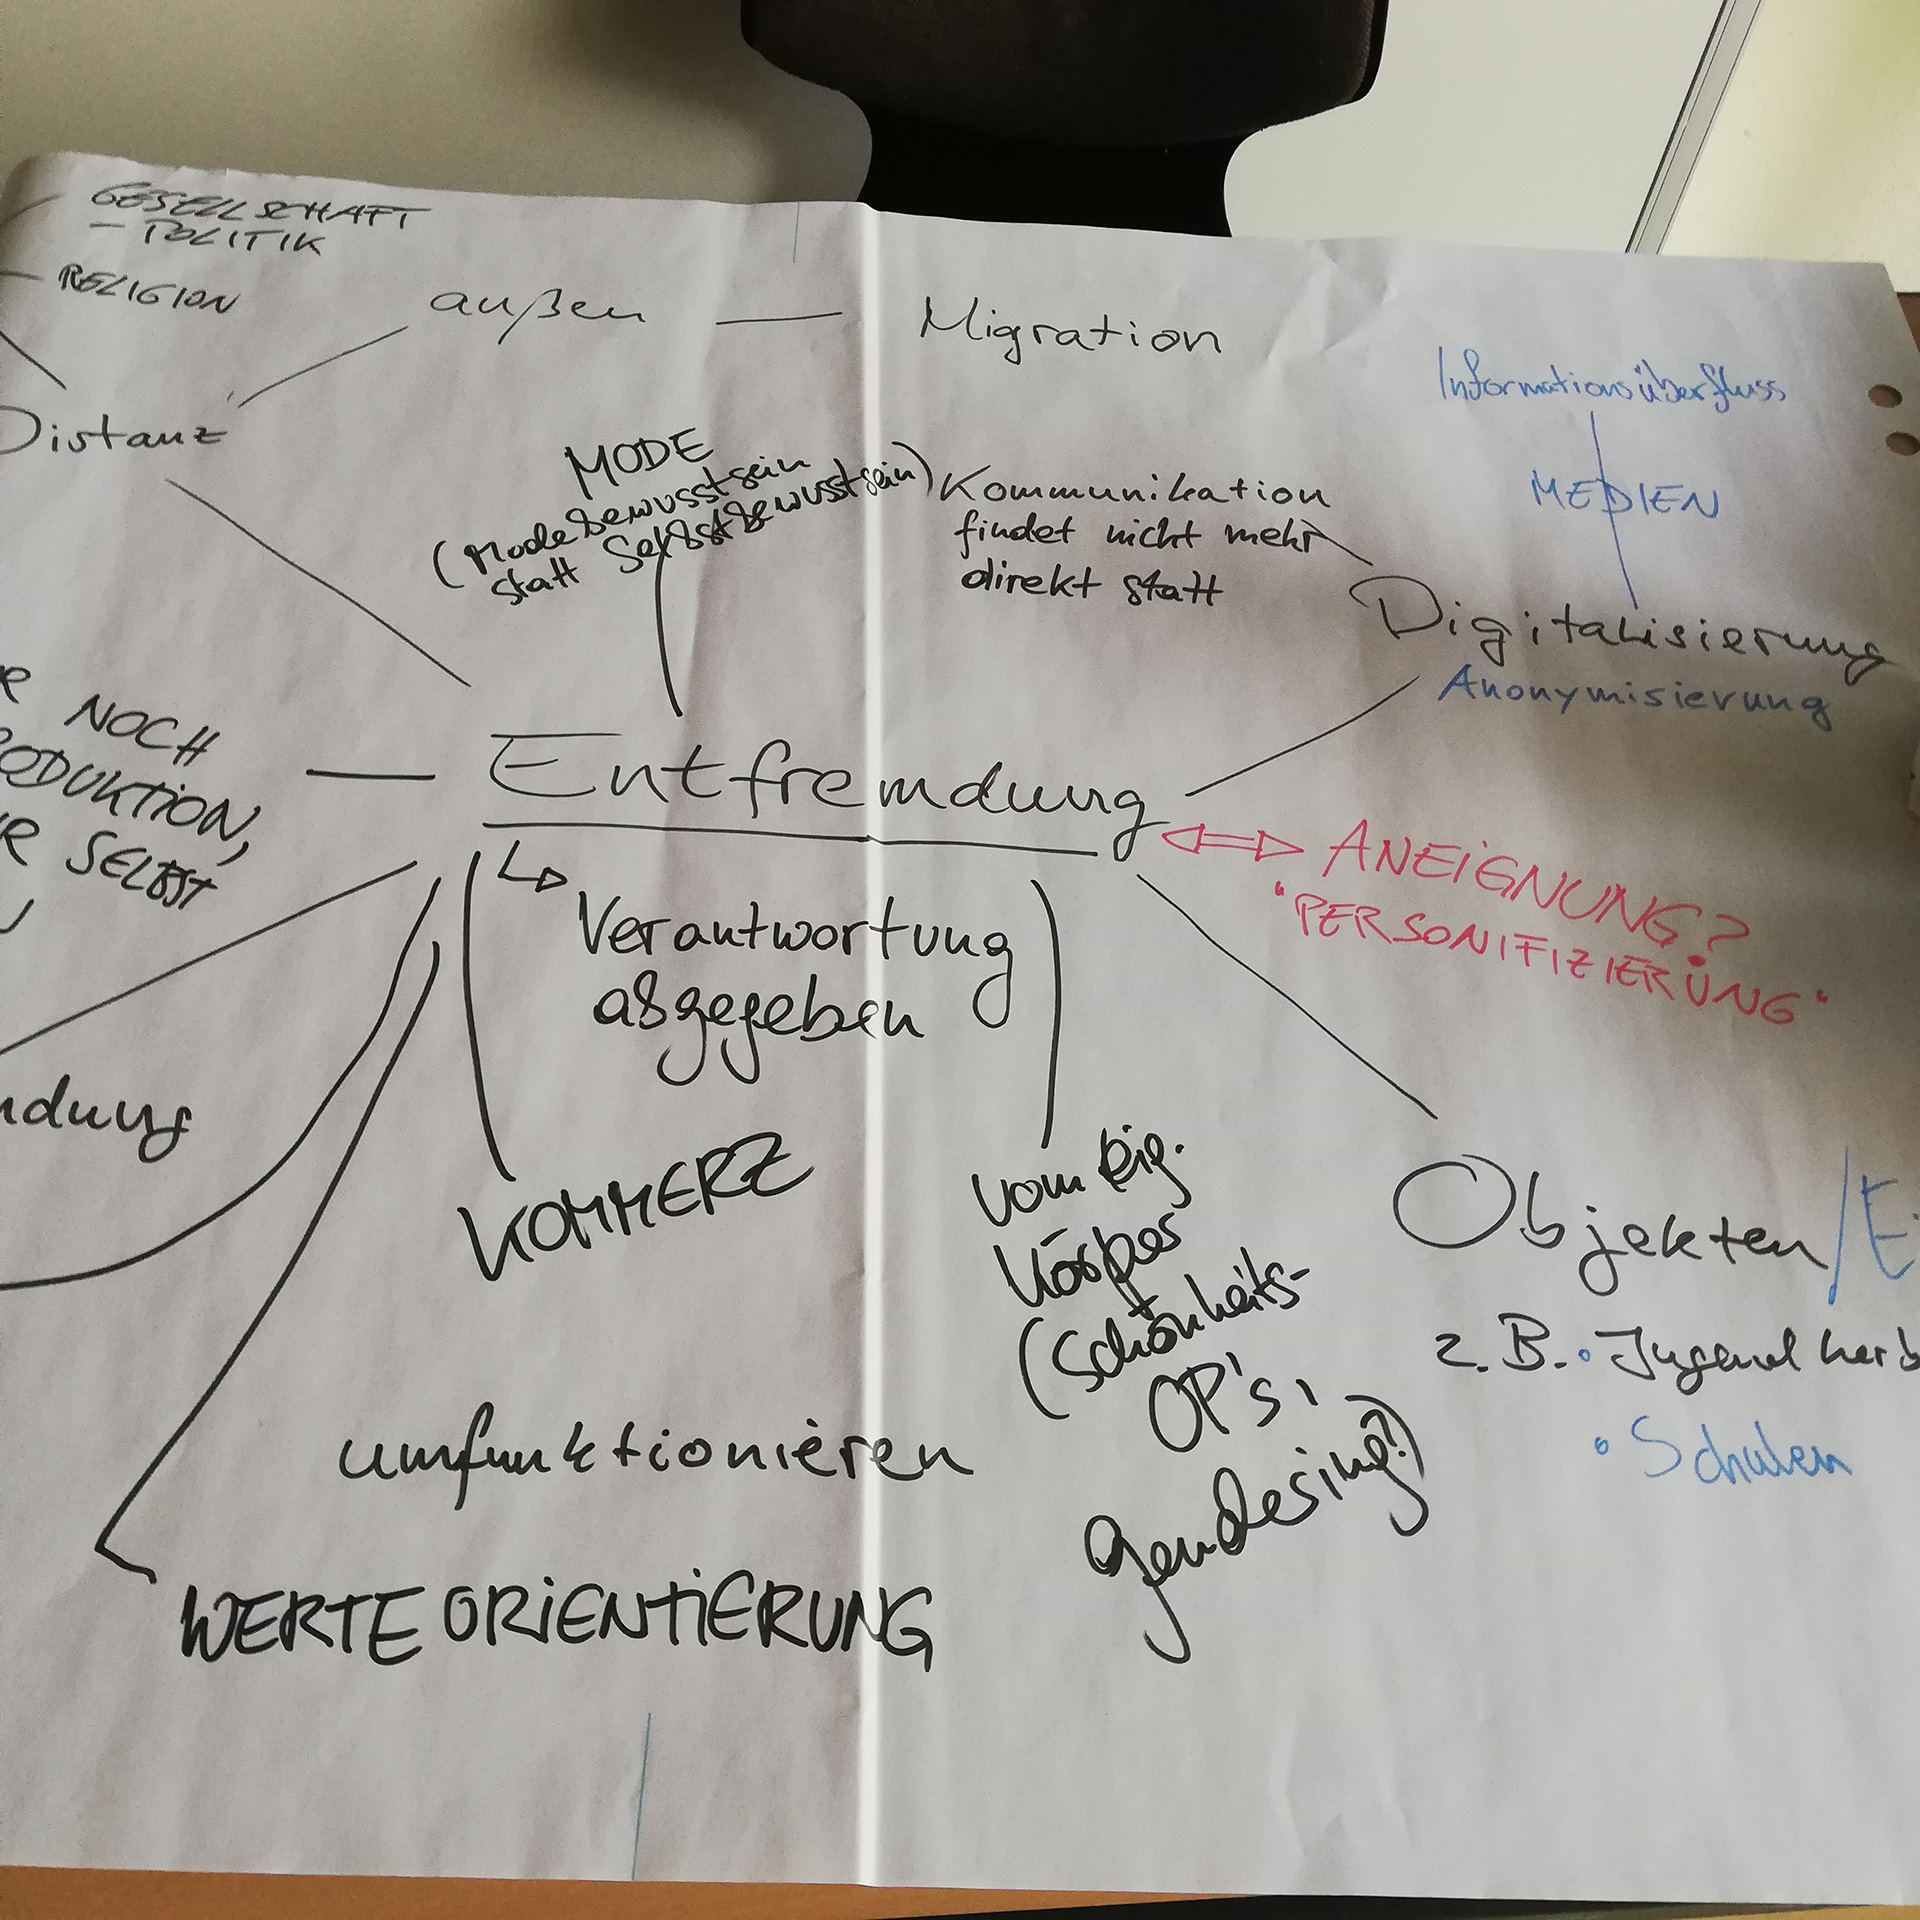 GESELLSCHAFT
– POLITIK
– RELIGION
außen
Migration
Distanz
Informationsüberfluss
MEDIEN
MODE
(Modebewusstsein
statt Selbstbewusstsein)
Kommunikation
findet nicht mehr
direkt statt
Digitalisierung
Anonymisierung
NOCH
ODUKTION,
R SELBST
Entfremdung
ANEIGNUNG?
"PERSONIFIZIERUNG"
Verantwortung
abgegeben
ndung
KOMMERZ
vom eig.
Körper
(Schönheits-
OP's,
gendesing?)
Objekten/
z.B. • Jugendherb
• Schulen
umfunktionieren
WERTEORIENTIERUNG